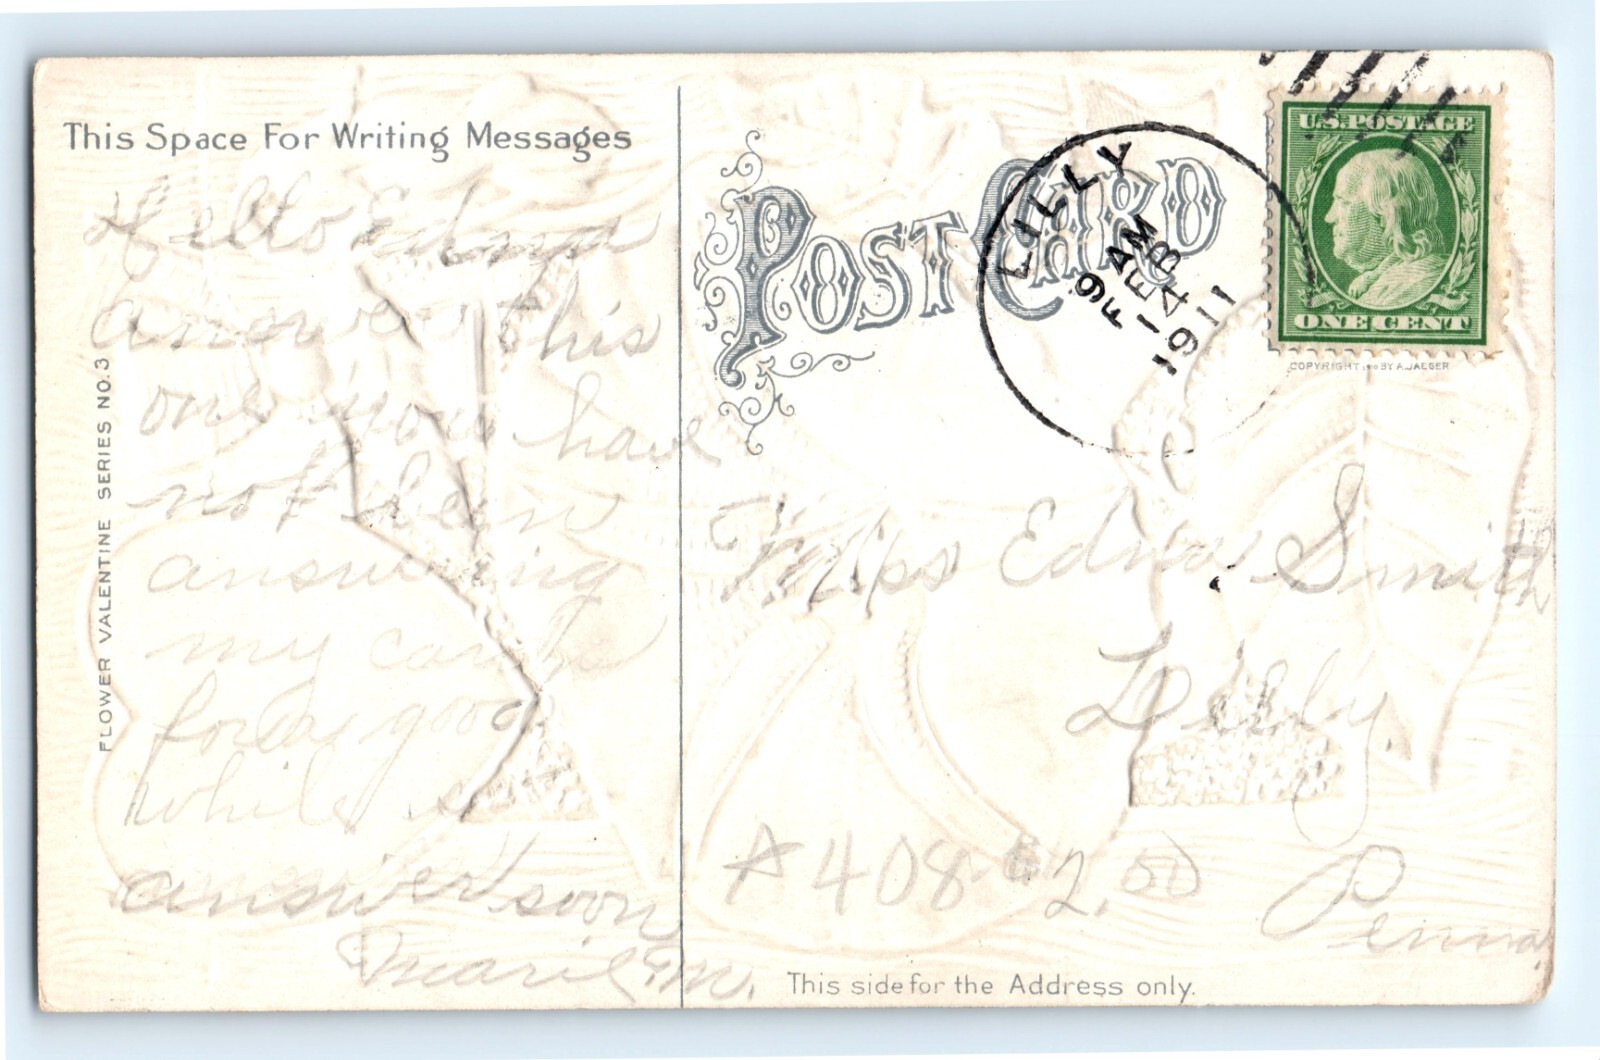 This Space For Writing Messages
Hello Edna
answer this
one you have
not been
answering
my cards
for a good
while
answer soon
Marie M.
FLOWER VALENTINE SERIES NO. 3
POST CARD
LILLY
9 AM
FEB
14
1911
U.S. POSTAGE
ONE CENT
COPYRIGHT 1910 BY A. JAEGER
Miss Edna Smith
Lilly
Penna
A408 $2.00
This side for the Address only.